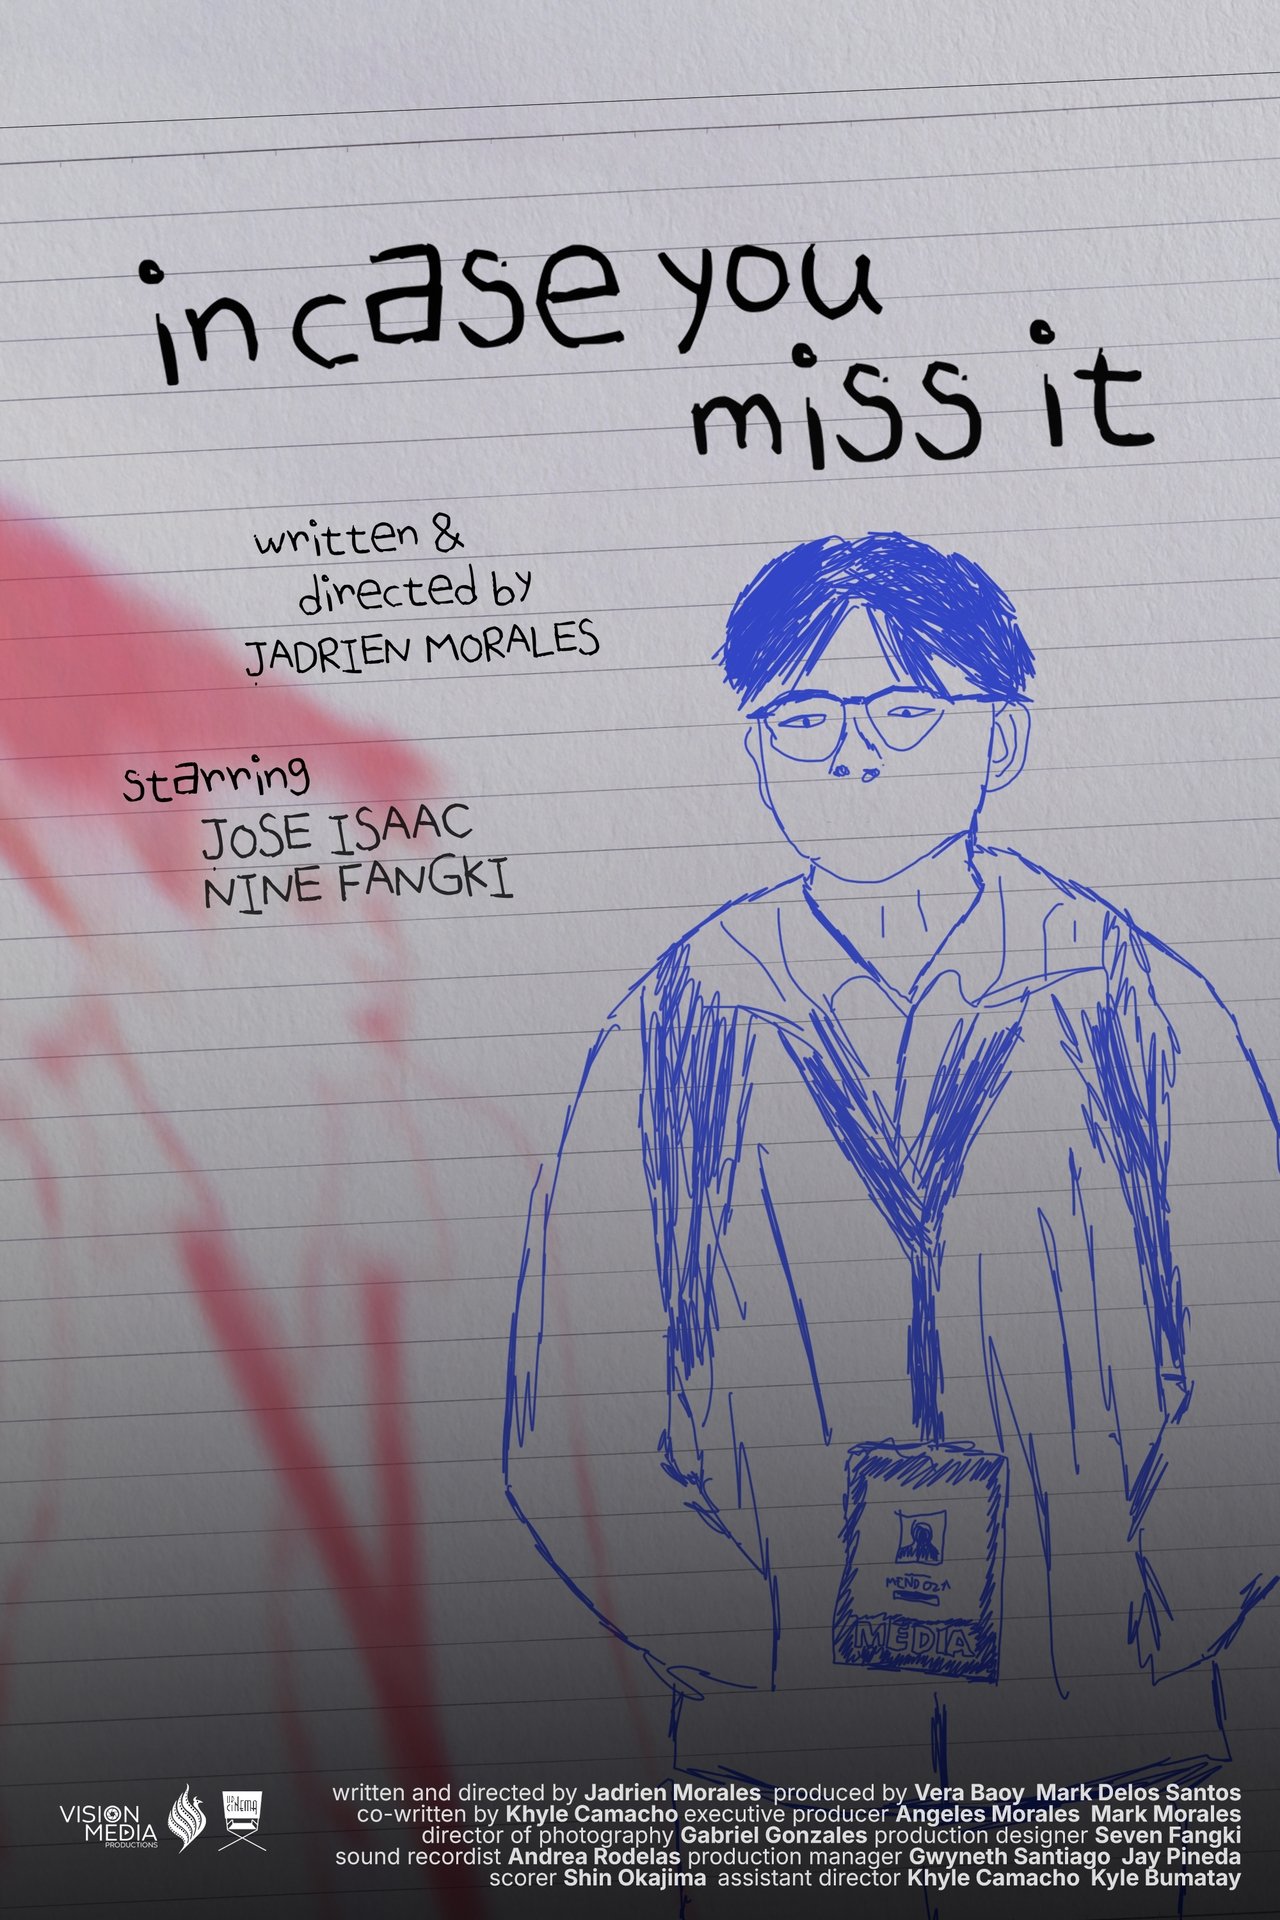 in case you
miss it
written &
directed by
JADRIEN MORALES
starring
JOSE ISAAC
NINE FANGKI
MENDOZA
MEDIA
VISION
MEDIA
PRODUCTIONS
UP
CINEMA
written and directed by Jadrien Morales produced by Vera Baoy Mark Delos Santos
co-written by Khyle Camacho executive producer Angeles Morales Mark Morales
director of photography Gabriel Gonzales production designer Seven Fangki
sound recordist Andrea Rodelas production manager Gwyneth Santiago Jay Pineda
scorer Shin Okajima assistant director Khyle Camacho Kyle Bumatay